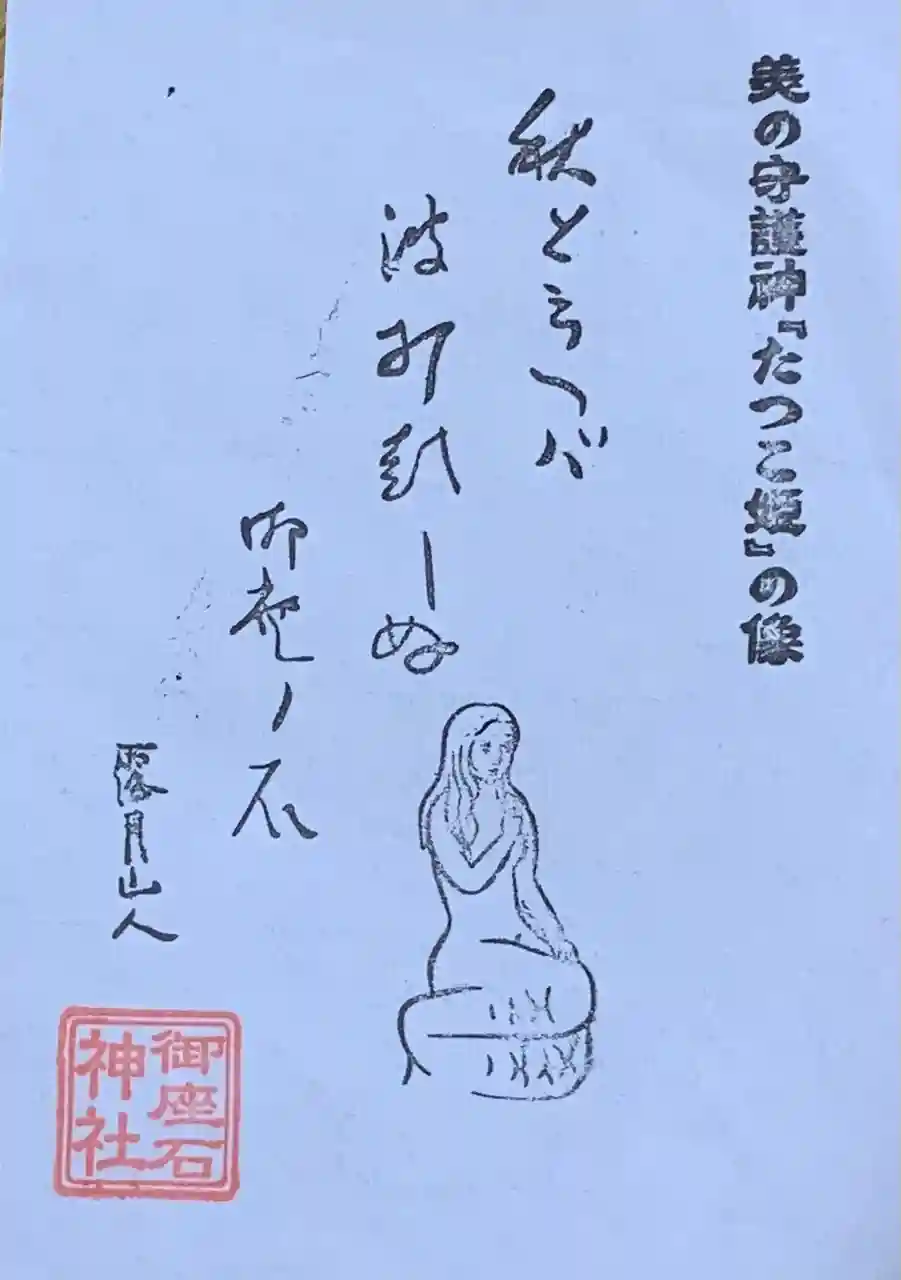 美の守護神『たつこ姫』の像
秋と云へバ
波打しぬ
御座ノ石
露月山人
御座石
神社